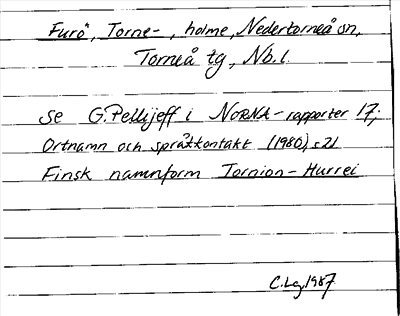 Furö, Torne-, holme, Nedertorneå sn,
Torneå tg, Nb.l.
se G. Pellijeff i NORNA-rapporter 17;
Ortnamn och språkkontakt (1980), s 21
Finsk namnform Tornion-Hurrei
C. Leg 1987